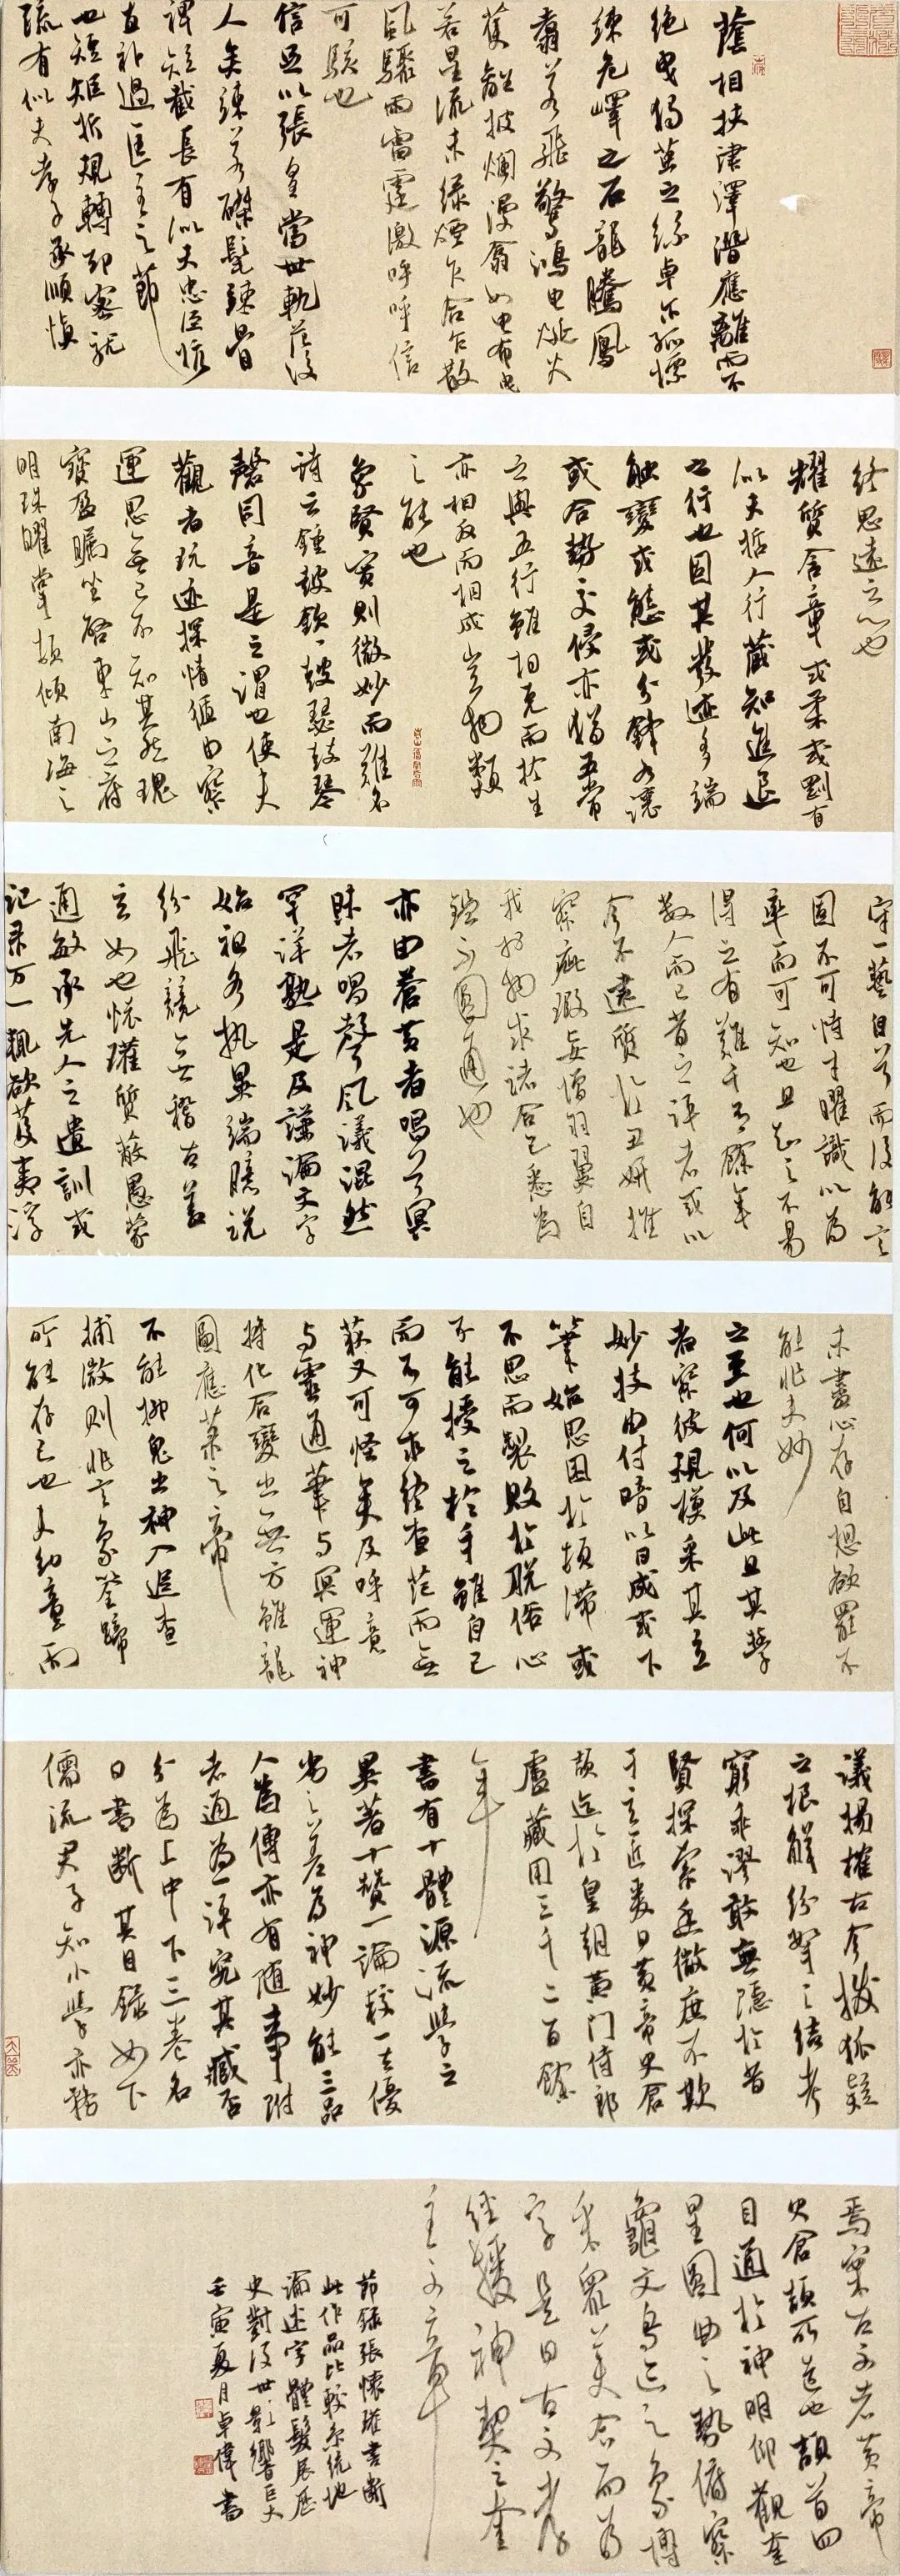 蔭相扶津澤潛應離而不
絕曳獨繭之絲卓爾孤標
竦危嶧之石龍騰鳳
翥若飛驚鴻電烻火
雚離披爛漫翕如雲布曳
若星流朱綠煙乍合乍散
風驟雨雷霆激呼呼信
可駭也
信足以張皇當世軌範後
人矣竦若磔髦竦骨
裨短截長有似夫忠臣抗
直補過匡主之節
也矩折規轉卻密就
疏有似夫孝子承順慎
終思遠之心也
耀質含章或柔或剛有
似夫哲人行藏知進退
之行也因其發迹多端
觸變或態或分鋒各讓
或合勢交侵亦猶五常
之與五行雖相克而相生
亦相反而相成豈物類
之能也
象賢實則微妙而難名
詩云鐘鼓欽欽鼓瑟鼓琴
磬同音是之謂也使夫
觀者玩迹探情循由察
運思無已不知其然瑰
寶盈矚坐啓東山之府
明珠曜掌頓傾南海之
守一藝自以而後能言
固不可恃才曜識以為
率而可知也且知之不易
得之有難千有餘年
數人而已昔之評者或以
今不逮質於醜妍推
察疵瑕妄增羽翼自
我於物求諸合己悉為
鑑不圓通也
亦由蒼黃者唱首冥
昧者唱聲風議混然
罕詳孰是及兼論文字
始祖各執異端臆說
紛飛競無稽古蓋
言如也懷瓘質蔽愚蒙
通敏承先人之遺訓或
記錄萬一輒欲芟夷浮
未盡心存自想欲罷不
能非夫妙
之至也何以及此且其學
者察彼規模采其玄
妙技由付暗以目成或下
筆始思困於鈍滯或
不思而製敗於脫俗心
不能授之於手雖自己
而不可求終查茫而無
獲又可怪矣及呼意
與靈通筆與冥運神
將化合變出無方雖龍
圖應籙之帝
不能抑鬼出神入追查
捕微則非言象筌蹄
所能存亡也夫幼童而
議揚榷古今拔狐疑
之根解紛拏之結考
窮乖謬敢無隱於昔
賢探索幽微庶不欺
於玄匠爰自黃帝史倉
頡迄於皇朝黃門侍郎
盧藏用三千二百餘
年
書有十體源流學之
異著十贊一論較一其優
劣之差為神妙能三品
人為傳亦有隨事附
者通為一評究其臧否
分為上中下三卷名
曰書斷其目錄如下
儒流君子知小學亦務
焉案古文者黃帝
史倉頡所造也頡首四
目通於神明仰觀奎
星圓曲之勢俯察
龜文鳥迹之象博
采眾美合而為
字是曰古文孝
經援神契云奎
主文章
節錄張懷瓘書斷
此作品比較系統地
論述字體發展歷
史對後世影響巨大
壬寅夏月卓偉書